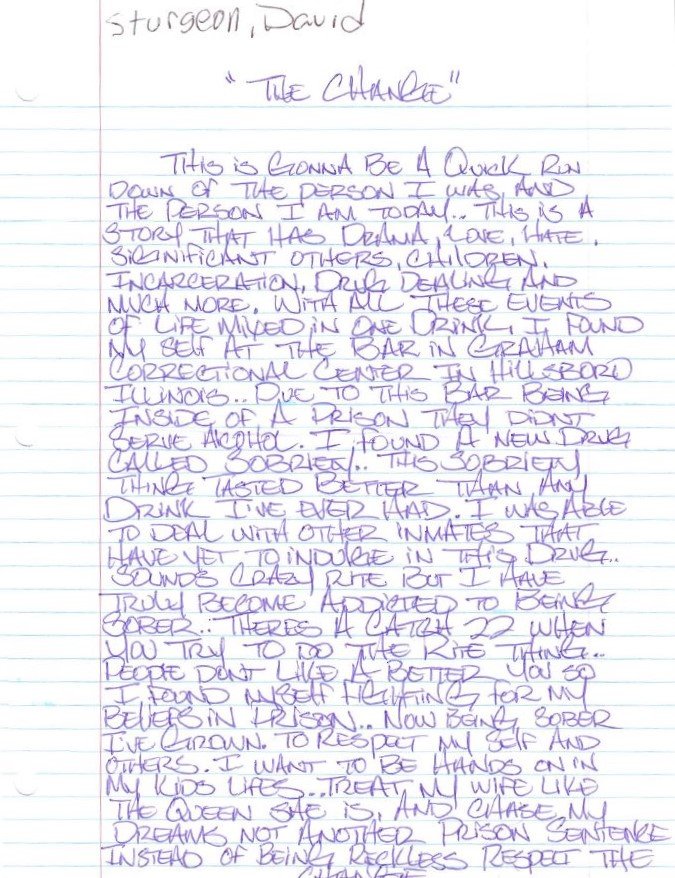 Sturgeon, David
"THE CHANGE"
THIS IS GONNA BE A QUICK RUN
DOWN OF THE PERSON I WAS AND
THE PERSON I AM TODAY.. THIS IS A
STORY THAT HAS DRAMA, LOVE, HATE,
SIGNIFICANT OTHERS, CHILDREN,
INCARCERATION, DRUG DEALING AND
MUCH MORE. WITH ALL THESE EVENTS
OF LIFE MIXED IN ONE DRINK, I FOUND
MY SELF AT THE BAR IN GRAHAM
CORRECTIONAL CENTER IN HILLSBORO
ILLINOIS.. DUE TO THIS BAR BEING
INSIDE OF A PRISON THEY DIDNT
SERVE ALCOHOL. I FOUND A NEW DRUG
CALLED SOBRIETY.. THIS SOBRIETY
THING TASTED BETTER THAN ANY
DRINK I'VE EVER HAD. I WAS ABLE
TO DEAL WITH OTHER INMATES THAT
HAVE YET TO INDULGE IN THIS DRUG..
SOUNDS CRAZY RITE BUT I HAVE
TRULY BECOME ADDICTED TO BEING
SOBER.. THERES A CATCH 22 WHEN
YOU TRY TO DO THE RITE THING..
PEOPLE DONT LIKE A BETTER YOU SO
I FOUND MYSELF FIGHTING FOR MY
BELIEFS IN PRISON.. NOW BEING SOBER
I'VE GROWN. TO RESPECT MY SELF AND
OTHERS. I WANT TO BE HANDS ON IN
MY KIDS LIFES.. TREAT MY WIFE LIKE
THE QUEEN SHE IS, AND CHASE MY
DREAMS NOT ANOTHER PRISON SENTENCE
INSTEAD OF BEING RECKLESS RESPECT THE
CHANGE